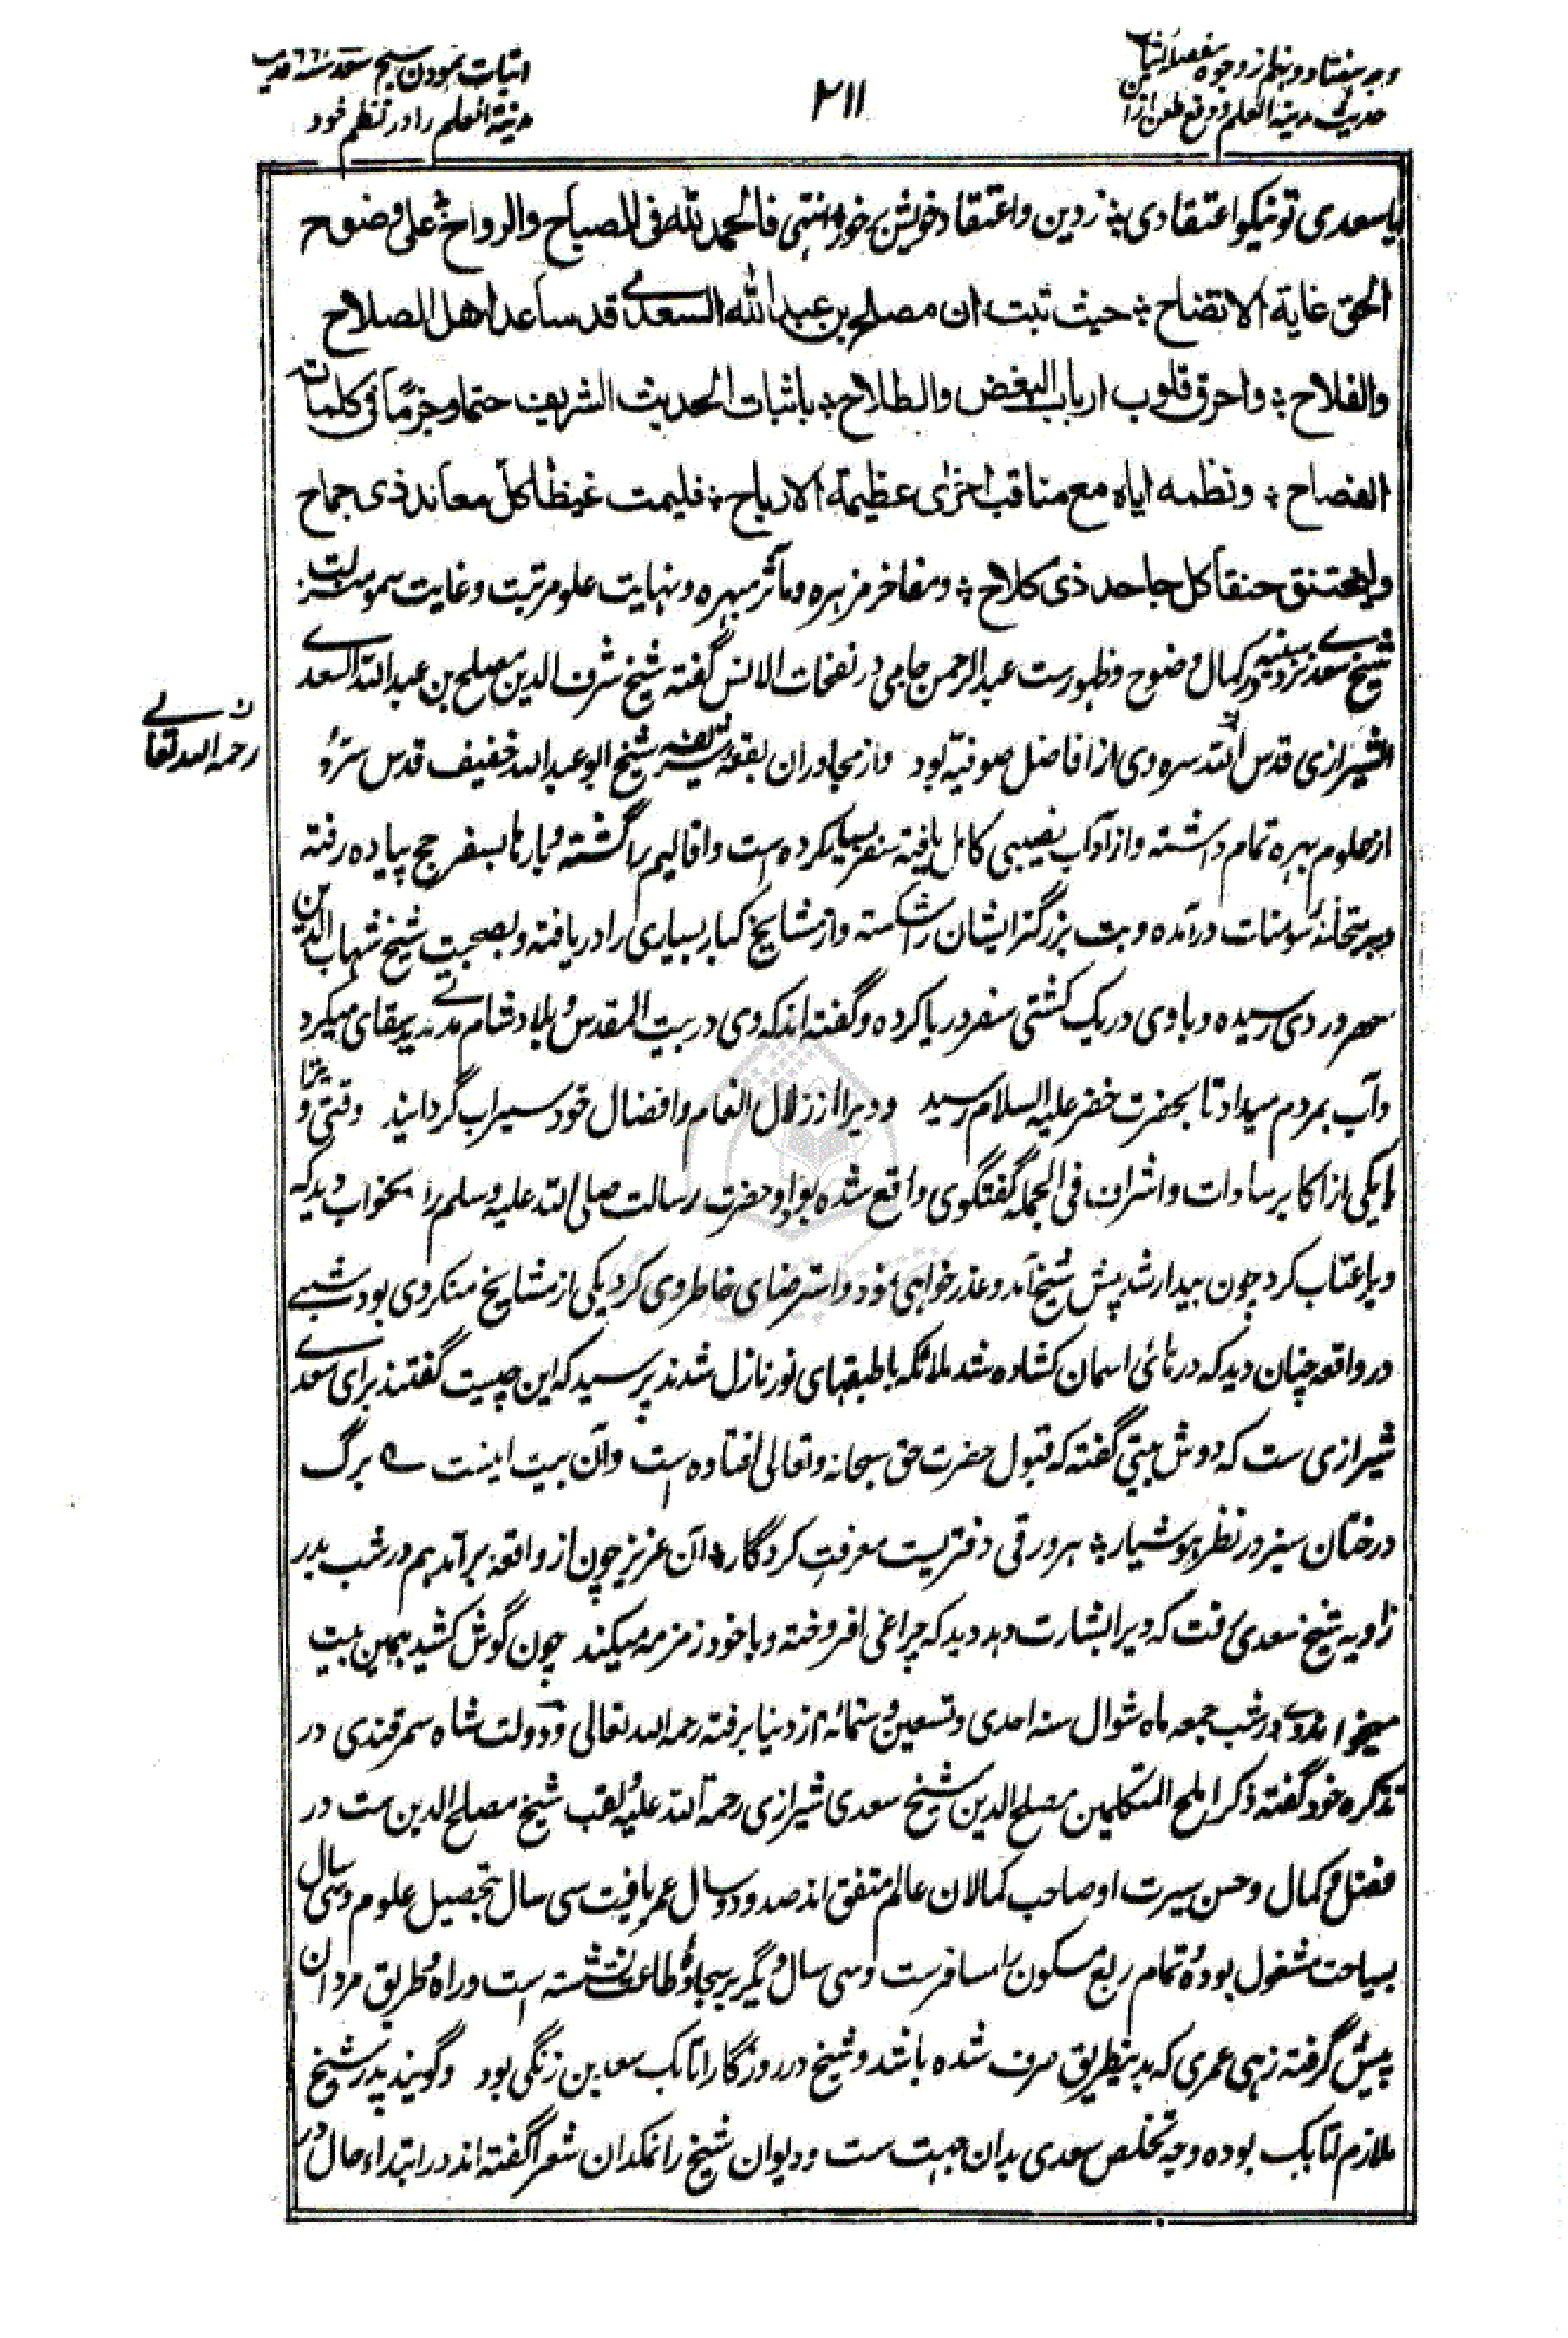 وجه هفتاد و نهم از وجوه مفصله اثبات
حدیث مدینة العلم و دفع طعن از آن
۲۱۱
اثبات نمودن شیخ سعدی حدیث
مدینة العلم را در نظم خود
یا سعدی تو نیکو اعتقادی ؞ ز دین و اعتقاد خویش بر خور انتهی فالحمد لله فی الصباح والرواح ؞ علی وضوح
الحق غایة الاتضاح ؞ حیث ثبت ان مصلح بن عبد الله السعدی قد ساعد اهل الصلاح
والفلاح ؞ واحرق قلوب ارباب البغض والطلاح ؞ باثبات الحدیث الشریف حتما وجزما فی کلماته
الفصاح ؞ ونظمه ایاه مع مناقب اخری عظیمة الارباح ؞ فلیمت غیظا کل معاند ذی جماح
ولیختنق حنقا کل جاحد ذی کلاح ؞ و مفاخر مزهره و مآثر مبهره و نهایت علو مرتبت و غایت سمو منزلت
شیخ سعدی نزد سنیه در کمال وضوح و ظهورست عبد الرحمن جامی در نفحات الانس گفته شیخ شرف الدین مصلح بن عبد الله السعدی
الشیرازی قدس الله تعالی سره وی از افاضل صوفیّه بود و از مجاوران بقعه شریفه شیخ ابو عبد الله خفیف قدس سرّه
رحمه الله تعالی
از علوم بهره تمام داشته و از آداب نصیبی کامل یافته سفر بسیار کرده است و اقالیم را گشته و بارها بسفر حج پیاده رفته
و به بتخانه سومنات درآمده و بت بزرگتر ایشان را شکسته و از مشایخ کبار بسیاری را دریافته و بصحبت شیخ شهاب الدین
سهروردی رسیده و با وی در یک کشتی سفر دریا کرده و گفته اند که وی در بیت المقدس و بلاد شام مدتی مدید سقای میکرد
و آب بمردم میداد تا بحضرت خضر علیه السلام رسید و ویرا از زلال انعام و افضال خود سیراب گردانید وقتی ویرا
با یکی از اکابر سادات و اشراف فی الجمله گفتگوی واقع شده بود او حضرت رسالت صلی الله علیه وسلم را بخواب دید که
ویرا عتاب کرد چون بیدار شد پیش شیخ آمد و عذر خواهی نمود و استرضای خاطر وی کرد یکی از مشایخ منکر وی بود شبی
در واقعه چنان دید که درهائی آسمان کشاده شد ملائکه با طبقهای نور نازل شدند پرسید که این چیست گفتند برای سعدی
شیرازی ست که دوش بیتی گفته که قبول حضرت حق سبحانه و تعالی افتاده است و آن بیت اینست برگ
درختان سبز در نظر هوشیار ؞ هر ورقی دفتریست معرفت کردگار ؞ آن عزیز چون از واقعه برآمد هم در شب بدر
زاویه شیخ سعدی رفت که ویرا بشارت دهد دید که چراغی افروخته و با خود زمزمه میکند چون گوش کشید همین بیت
میخواند وی در شب جمعه ماه شوال سنه احدی و تسعین و ستمائه از دنیا برفته رحمه الله تعالی و دولت شاه سمرقندی در
تذکره خود گفته ذکر املح المتکلمین مصلح الدین شیخ سعدی شیرازی رحمة الله علیه لقب شیخ مصلح الدین ست در
فضل و کمال و حسن سیرت او صاحب کمالان عالم متفق اند صد و دو سال عمر یافت سی سال بتحصیل علوم و سی سال
بسیاحت مشغول بوده تمام ربع مسکون را مسافرست و سی سال دیگر بر سجاده طاعت نشسته است و راه و طریق مردان
پیش گرفته زهی عمری که بدینطریق صرف شده باشد و شیخ در روزگار اتابک سعد بن زنگی بود و گویند پدر شیخ
ملازم اتابک بوده وجه تخلص سعدی بدان جهت ست و دیوان شیخ را نمکدان شعرا گفته اند در ابتداء حال در